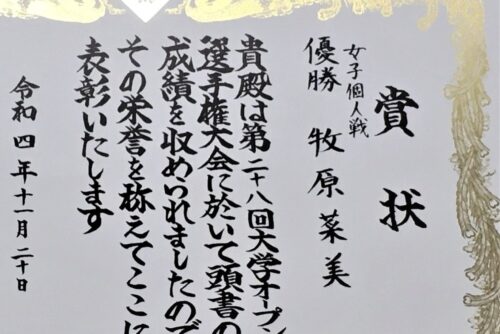 賞状
女子個人戦
優勝 牧原菜美
貴殿は第二十八回大学オープン
選手権大会に於いて頭書の
成績を収められましたので
その栄誉を称えてここに
表彰いたします
令和四年十一月二十日